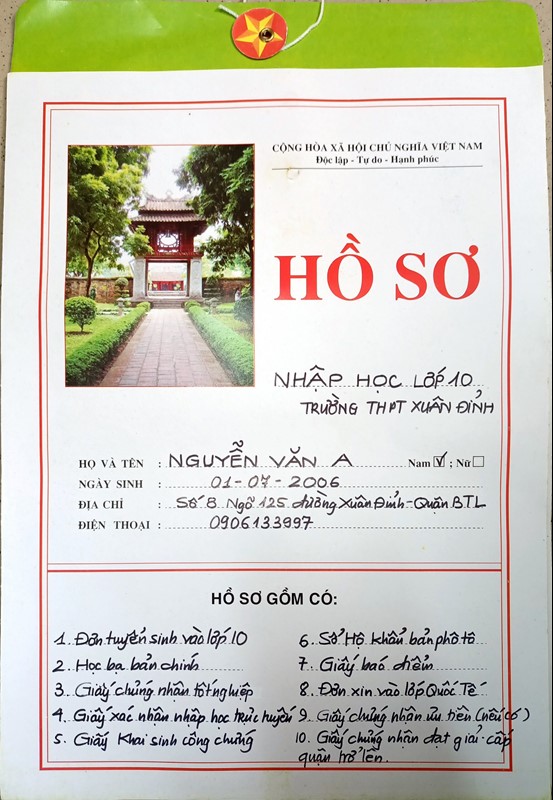 CỘNG HÒA XÃ HỘI CHỦ NGHĨA VIỆT NAM
Độc lập - Tự do - Hạnh phúc
HỒ SƠ
NHẬP HỌC LỚP 10
TRƯỜNG THPT XUÂN ĐỈNH
HỌ VÀ TÊN : NGUYỄN VĂN A Nam ☑ ; Nữ ☐
NGÀY SINH : 01-07-2006
ĐỊA CHỈ : Số 8 Ngõ 125 đường Xuân Đỉnh - Quận BTL
ĐIỆN THOẠI : 0906133997
HỒ SƠ GỒM CÓ:
1. Đơn tuyển sinh vào lớp 10
2. Học bạ bản chính
3. Giấy chứng nhận tốt nghiệp
4. Giấy xác nhận nhập học trực tuyến
5. Giấy Khai sinh công chứng
6. Sổ Hộ khẩu bản phô tô
7. Giấy báo điểm
8. Đơn xin vào lớp Quốc Tế
9. Giấy chứng nhận ưu tiên (nếu có)
10. Giấy chứng nhận đạt giải cấp
quận trở lên.